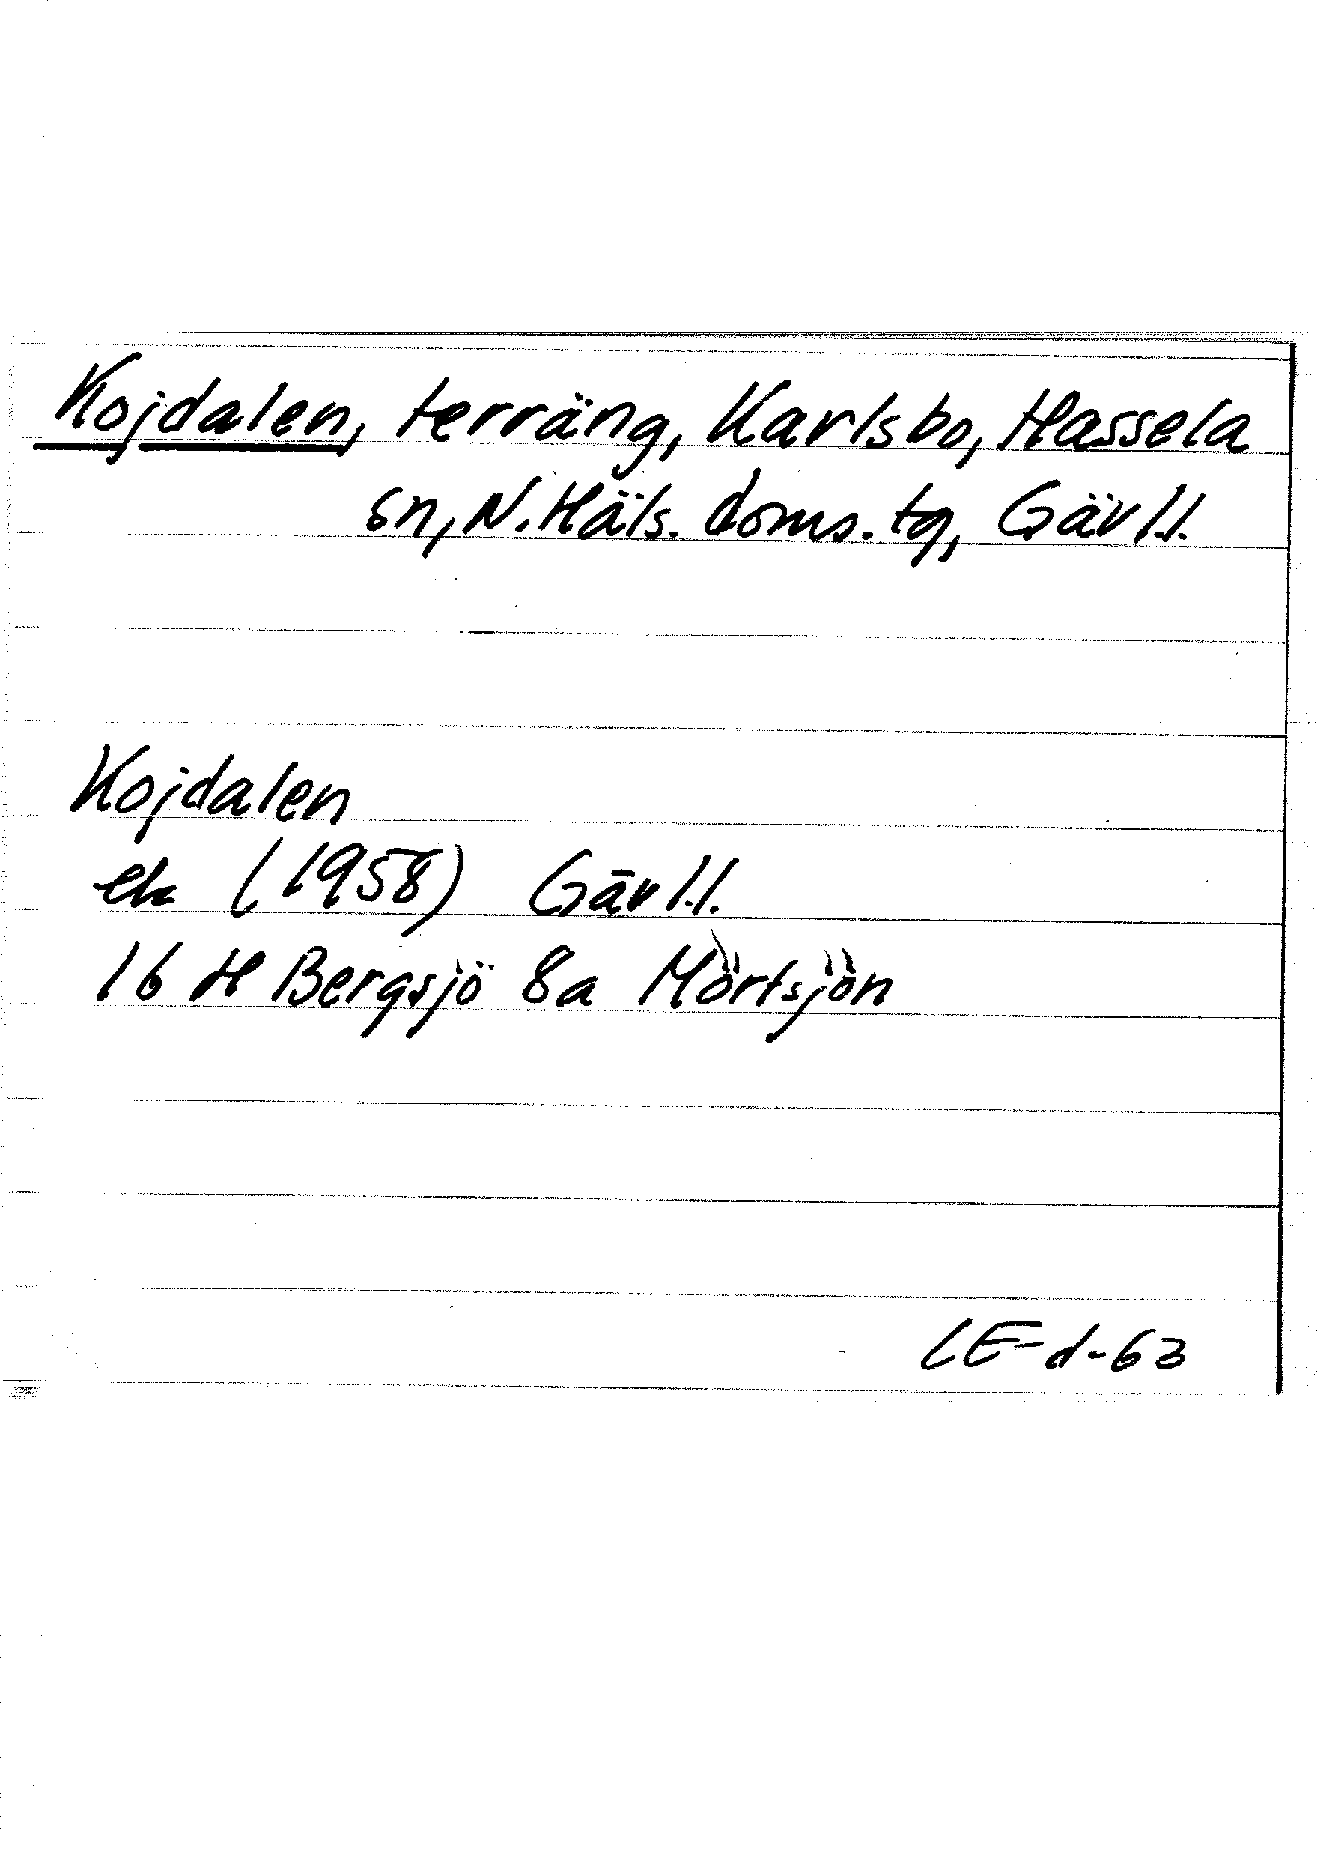 Kojdalen, terräng, Karlsbo, Hassela
sn, N. Häls. doms. tg, Gävl.l.
Kojdalen
ek (1958) Gävl.l.
16 H Bergsjö 8a Mörtsjön
LE-d-63